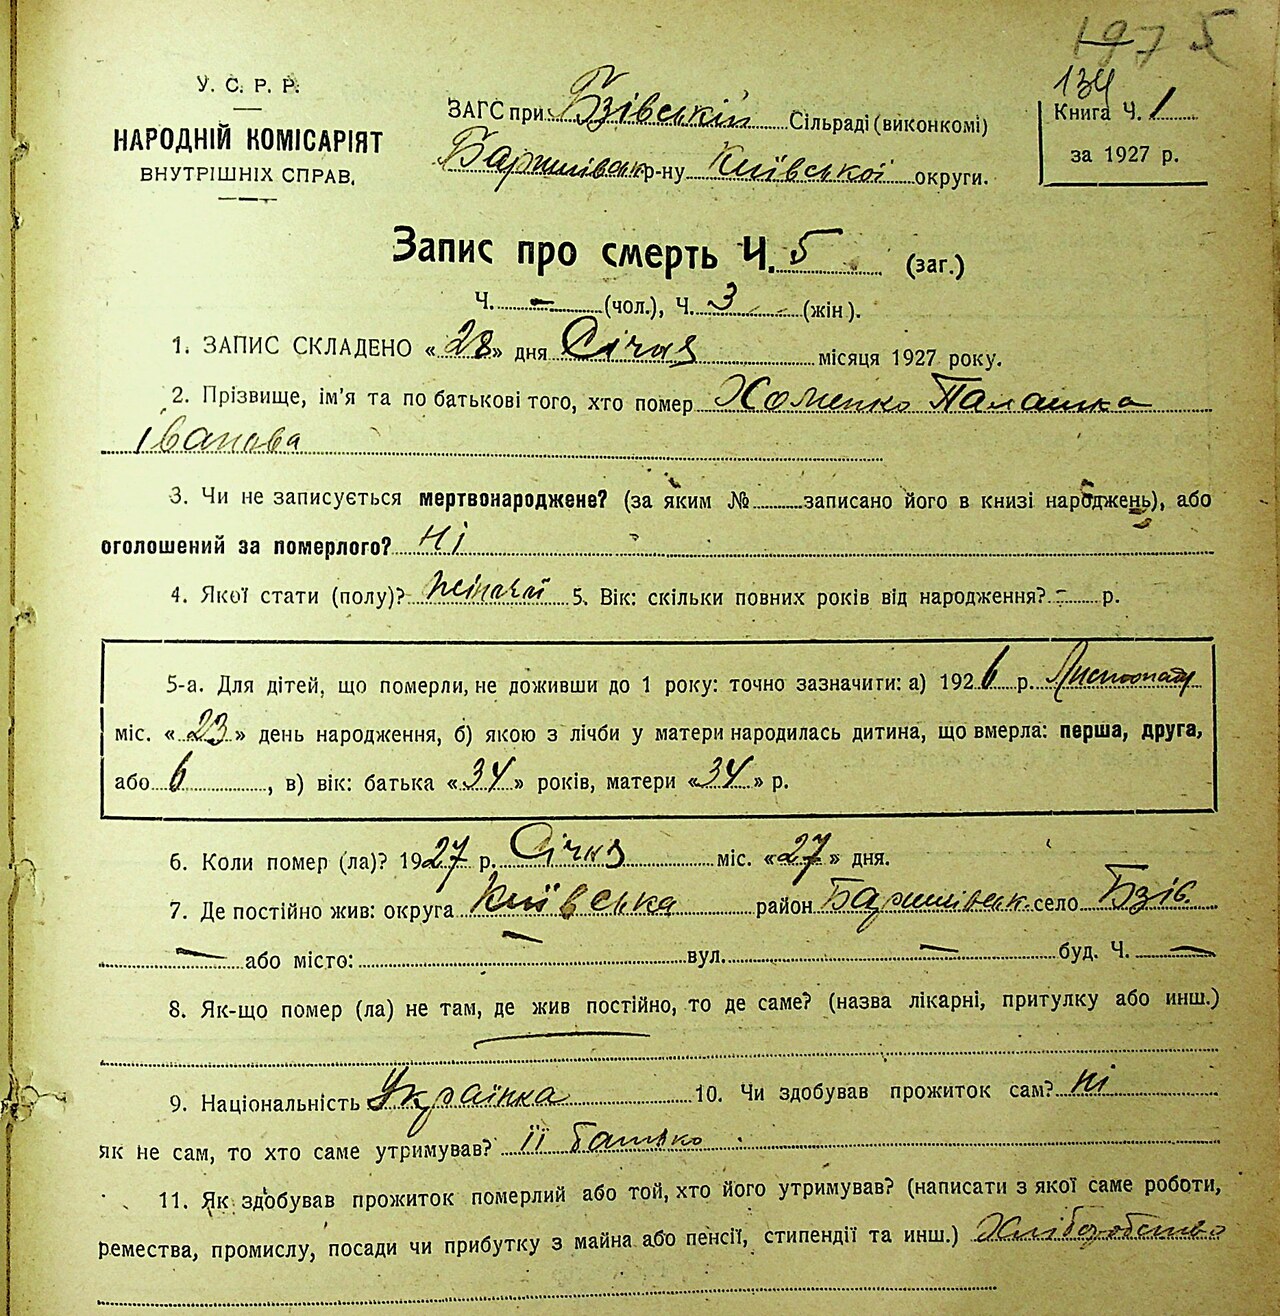 1975
134
У. С. Р. Р.
НАРОДНІЙ КОМІСАРІЯТ
ВНУТРІШНІХ СПРАВ.
ЗАГС при Бзівській Сільраді (виконкомі)
Баришівськ р-ну Київської округи.
Книга Ч. 1
за 1927 р.
Запис про смерть Ч. 5 (заг.)
Ч. — (чол.), Ч. 3 (жін).
1. ЗАПИС СКЛАДЕНО «28» дня Січня місяця 1927 року.
2. Прізвище, ім'я та по батькові того, хто помер Хоменко Палашка
Іванова
3. Чи не записується мертвонароджене? (за яким № записано його в книзі народжень), або
оголошений за померлого? Ні
4. Якої стати (полу)? жіночої 5. Вік: скільки повних років від народження? - р.
5-а. Для дітей, що померли, не доживши до 1 року: точно зазначити: а) 1926 р. Листопад
міс. «23» день народження, б) якою з лічби у матери народилась дитина, що вмерла: перша, друга,
або 6, в) вік: батька «34» років, матери «34» р.
6. Коли помер (ла)? 1927 р. Січня міс. «27» дня.
7. Де постійно жив: округа Київська район Баришівськ. село Бзів.
— або місто: — вул. — буд. Ч. —
8. Як-що помер (ла) не там, де жив постійно, то де саме? (назва лікарні, притулку або инш.)
9. Національність Українка 10. Чи здобував прожиток сам? ні
як не сам, то хто саме утримував? її батько
11. Як здобував прожиток померлий або той, хто його утримував? (написати з якої саме роботи,
ремества, промислу, посади чи прибутку з майна або пенсії, стипендії та инш.) Хліборобство